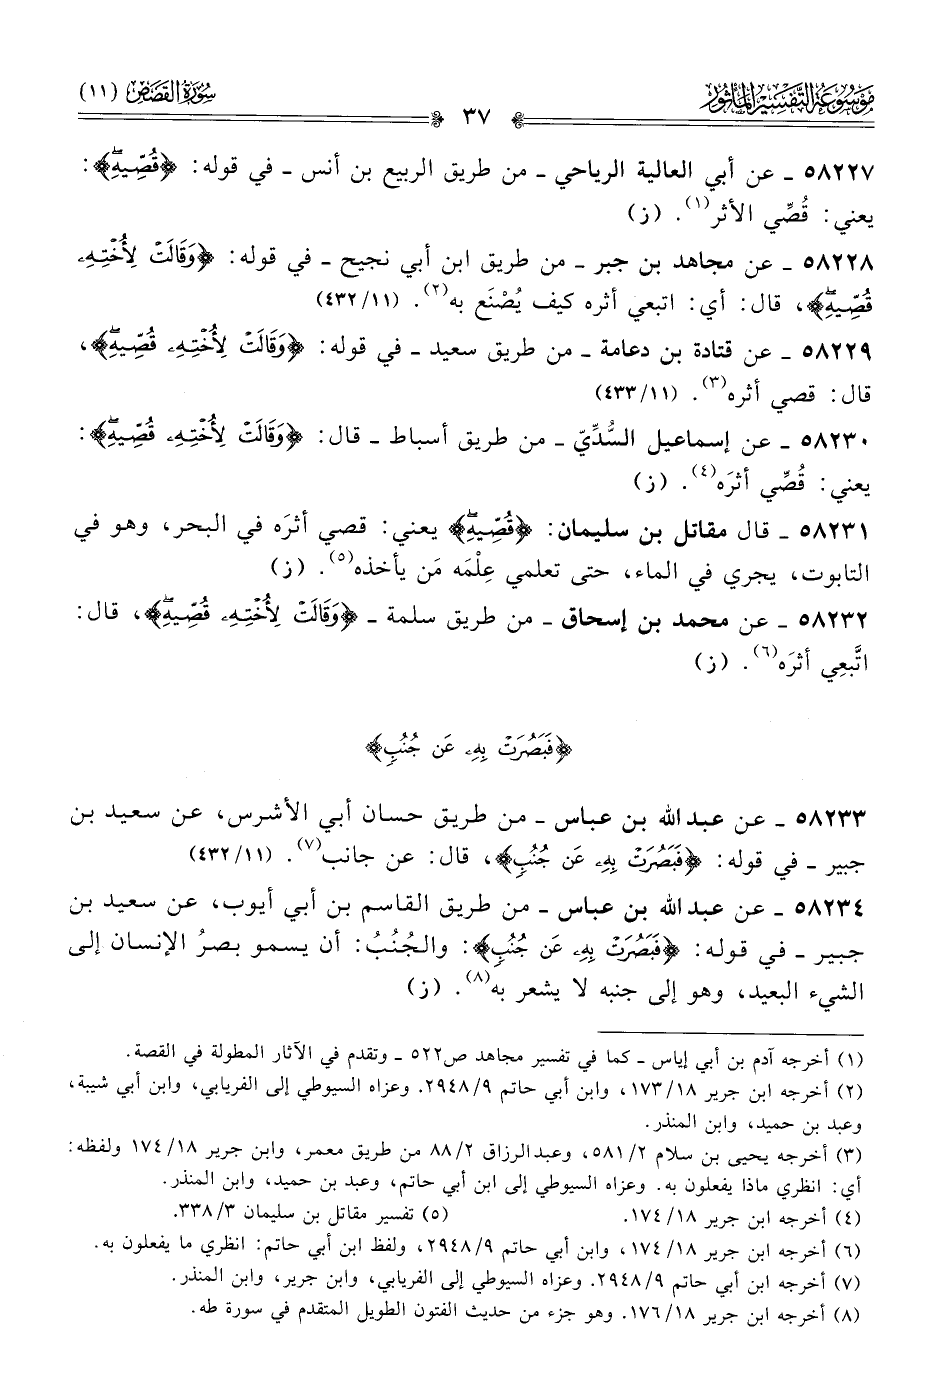 موسوعة التفسير المأثور
٣٧
سورة القصص (١١)
٥٨٢٢٧ ـ عن أبي العالية الرياحي ـ من طريق الربيع بن أنس ـ في قوله: ﴿قُصِّيهِۖ﴾:
يعني: قُصِّي الأثر(١). (ز)
٥٨٢٢٨ ـ عن مجاهد بن جبر ـ من طريق ابن أبي نجيح ـ في قوله: ﴿وَقَالَتْ لِأُخْتِهِۦ
قُصِّيهِۖ﴾، قال: أي: اتبعي أثره كيف يُصْنَع به(٢). (٤٣٢/١١)
٥٨٢٢٩ ـ عن قتادة بن دعامة ـ من طريق سعيد ـ في قوله: ﴿وَقَالَتْ لِأُخْتِهِۦ قُصِّيهِۖ﴾،
قال: قصي أثره(٣). (٤٣٣/١١)
٥٨٢٣٠ ـ عن إسماعيل السُّدِّيّ ـ من طريق أسباط ـ قال: ﴿وَقَالَتْ لِأُخْتِهِۦ قُصِّيهِۖ﴾:
يعني: قُصِّي أثرَه(٤). (ز)
٥٨٢٣١ ـ قال مقاتل بن سليمان: ﴿قُصِّيهِۖ﴾ يعني: قصي أثرَه في البحر، وهو في
التابوت، يجري في الماء، حتى تعلمي عِلْمَه مَن يأخذه(٥). (ز)
٥٨٢٣٢ ـ عن محمد بن إسحاق ـ من طريق سلمة ـ ﴿وَقَالَتْ لِأُخْتِهِۦ قُصِّيهِۖ﴾، قال:
اتَّبعِي أثرَه(٦). (ز)
﴿فَبَصُرَتْ بِهِۦ عَن جُنُبٍ﴾
٥٨٢٣٣ ـ عن عبدالله بن عباس ـ من طريق حسان أبي الأشرس، عن سعيد بن
جبير ـ في قوله: ﴿فَبَصُرَتْ بِهِۦ عَن جُنُبٍ﴾، قال: عن جانب(٧). (٤٣٢/١١)
٥٨٢٣٤ ـ عن عبدالله بن عباس ـ من طريق القاسم بن أبي أيوب، عن سعيد بن
جبير ـ في قوله: ﴿فَبَصُرَتْ بِهِۦ عَن جُنُبٍ﴾: والجُنُبُ: أن يسمو بصرُ الإنسان إلى
الشيء البعيد، وهو إلى جنبه لا يشعر به(٨). (ز)
(١) أخرجه آدم بن أبي إياس ـ كما في تفسير مجاهد ص٥٢٢ ـ وتقدم في الآثار المطولة في القصة.
(٢) أخرجه ابن جرير ١٧٣/١٨، وابن أبي حاتم ٢٩٤٨/٩. وعزاه السيوطي إلى الفريابي، وابن أبي شيبة،
وعبد بن حميد، وابن المنذر.
(٣) أخرجه يحيى بن سلام ٥٨١/٢، وعبدالرزاق ٨٨/٢ من طريق معمر، وابن جرير ١٧٤/١٨ ولفظه:
أي: انظري ماذا يفعلون به. وعزاه السيوطي إلى ابن أبي حاتم، وعبد بن حميد، وابن المنذر.
(٤) أخرجه ابن جرير ١٧٤/١٨. (٥) تفسير مقاتل بن سليمان ٣٣٨/٣.
(٦) أخرجه ابن جرير ١٧٤/١٨، وابن أبي حاتم ٢٩٤٨/٩، ولفظ ابن أبي حاتم: انظري ما يفعلون به.
(٧) أخرجه ابن أبي حاتم ٢٩٤٨/٩. وعزاه السيوطي إلى الفريابي، وابن جرير، وابن المنذر.
(٨) أخرجه ابن جرير ١٧٦/١٨. وهو جزء من حديث الفتون الطويل المتقدم في سورة طه.